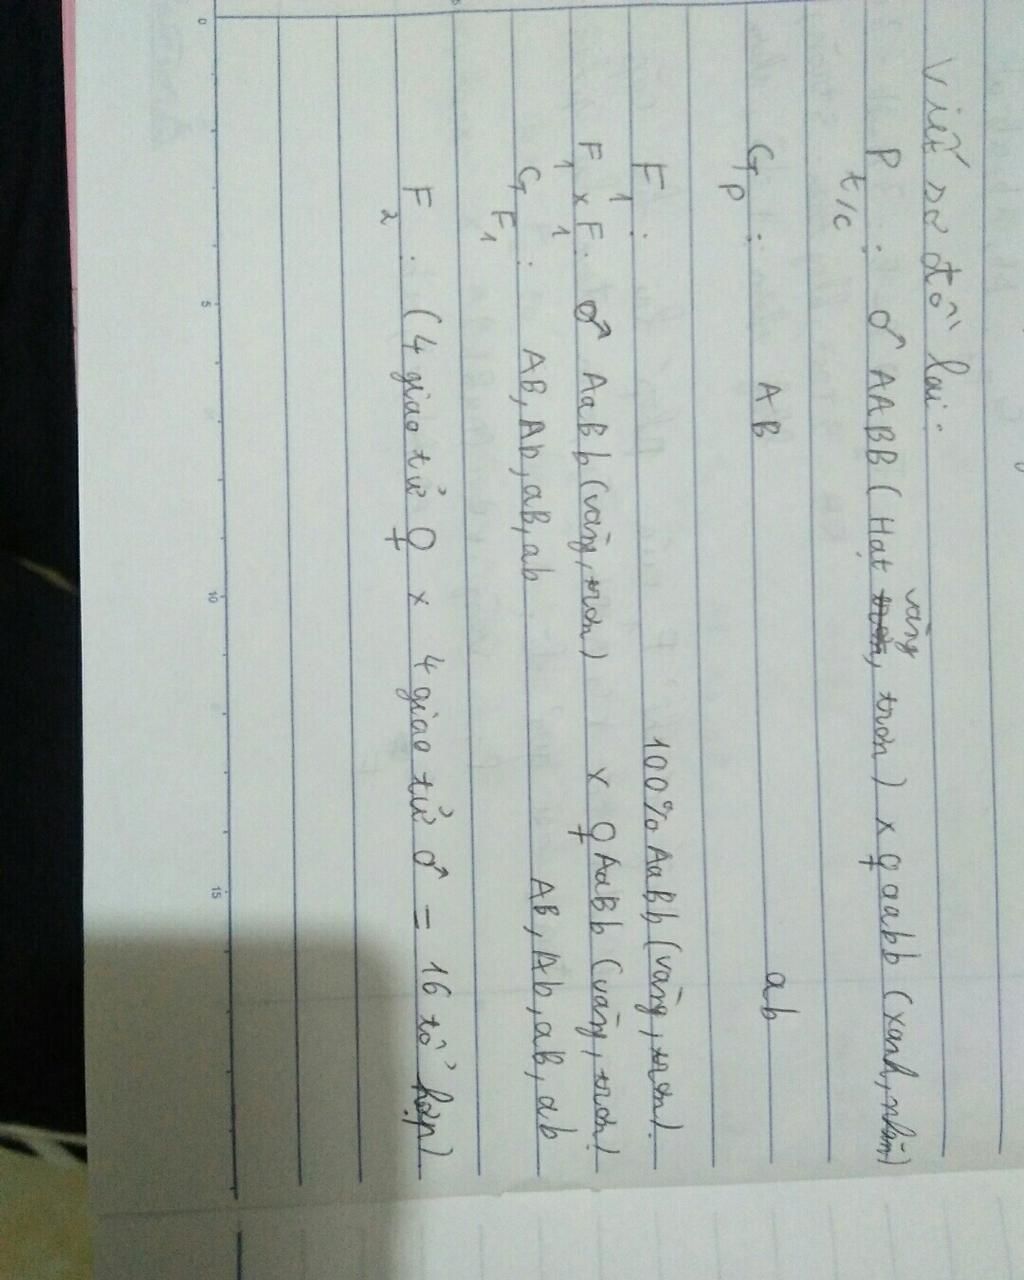 Viết sơ đồ lai:
P t/c : ♂ AABB (Hạt vàng, trơn) x ♀ aabb (xanh, nhăn)
GP : AB ab
F1 : 100% AaBb (vàng, trơn).
F1 x F1 : ♂ AaBb (vàng, trơn) x ♀ AaBb (vàng, trơn)
GF1 : AB, Ab, aB, ab AB, Ab, aB, ab
F2 : (4 giao tử ♀ x 4 giao tử ♂ = 16 tổ hợp)
0 5 10 15